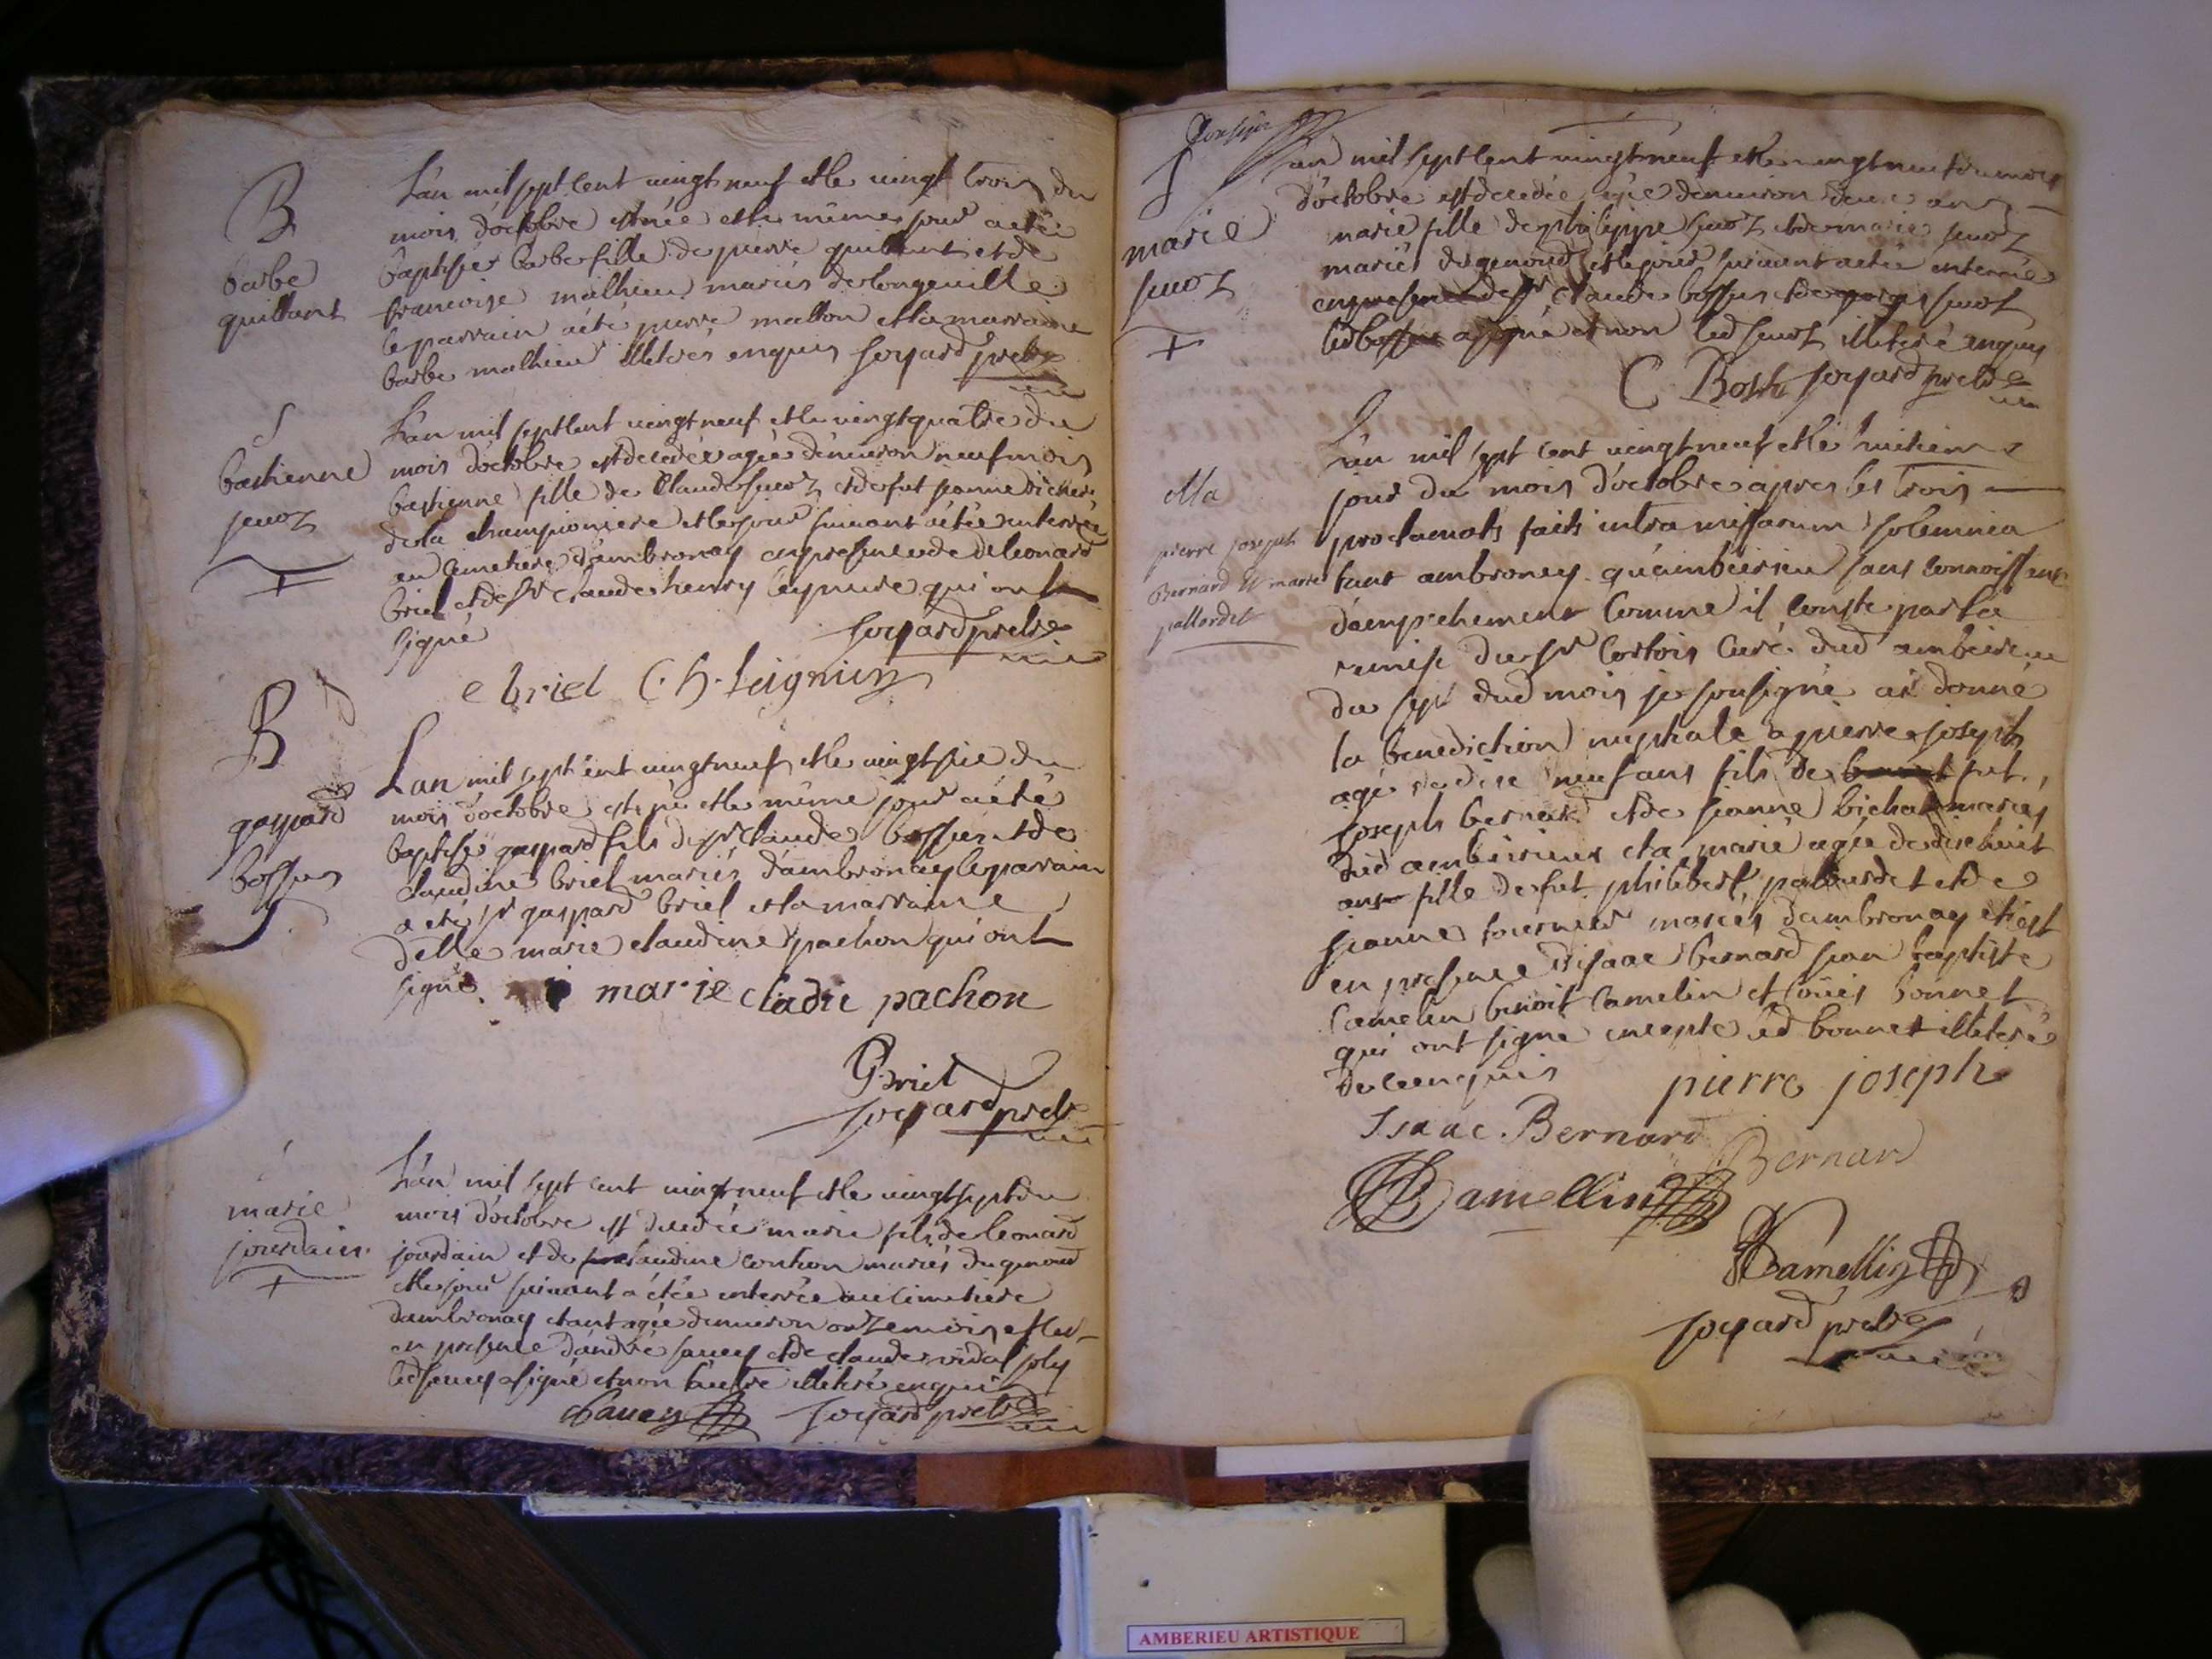 B
barbe
quillant
L'an mil sept cent vingt neuf et le vingt trois du
mois d'octobre est née et le même jour a eté
baptisée barbe fille de pierre quillant et de
francoise mathieu mariés de longeville
le parrain a été pierre matton et la marraine
barbe mathieu illiterés enquis soyard pretre
S
bastienne
L'an mil sept cent vingt neuf et le vingt quatre du
mois d'octobre est decedée agée d'environ neuf mois
bastienne fille de Claude et de fut jeanne
de la championiere et le jour suivant a étée enterrée
au cimetiere d'ambronay en presence de leonard
briel et de sr claude henry qui ont
signé
soyard pretre
e briel C. h.
B
gaspard
bossus
Lan mil sept cent vingt neuf et le vingt sie du
mois d'octobre est né et le même jour a été
baptisé gaspard fils de sr claude bossus et de
claudine briel mariés d'ambronay le parrain
a eté sr gaspard briel et la marraine
delle marie claudine pachon qui ont
signé
marie cladie pachon
G briel
soyard pretre
marie
jourdain
L'an mil sept cent vingt neuf et le vingt sept du
mois d'octobre est decedée marie fils de leonard
jourdain et de claudine mariés du genoud
et le jour suivant a étée enterrée au cimetiere
d'ambronay etant agée d'environ onze mois et ce
en presence d'andré sauey et de claude vidal joly
led sauey a signé et non l'autre illiteré enquis
sauey soyard pretre
S
marie
L'an mil sept cent vingt neuf et le vingt neuf du mois
d'octobre est decedée agée d'environ deux ans
marie fille de philippe et de marie
mariés du genoud et le jour suivant a étée enterrée
en presence de sr claude bossus et de
led bossus a signé et non led illiteré enquis
C. Bossu soyard pretre
Ma
pierre joseph
Bernard et marie
pallordet
L'an mil sept cent vingt neuf et le huitiem
jour du mois d'octobre apres les trois
proclamats faits intra missarum solemnia
tant ambronay qu'ambeirieu sans connoissance
d'empechement comme il conste par la
remise du sr Cortois curé dud ambeirieu
du sept dud mois je soussigné ai donné
la benediction nuptiale a pierre joseph
agé de dixe neuf ans fils de fut
joseph bernard et de jeanne bichat mariés
dud ambeirieux et a marie agée de dixe huit
ans fille de fut philibert pallordet et de
jeanne fournier mariés d'ambronay et c'est
en presence d'isaac bernard jean baptiste
Camelin benoit Camelin et loüis bonnet
qui ont signé excepté led bonnet illiteré
de ce enquis
pierre joseph
Isaac. Bernard
Bernar
Camellin
Camellin
soyard pretre
AMBERIEU ARTISTIQUE